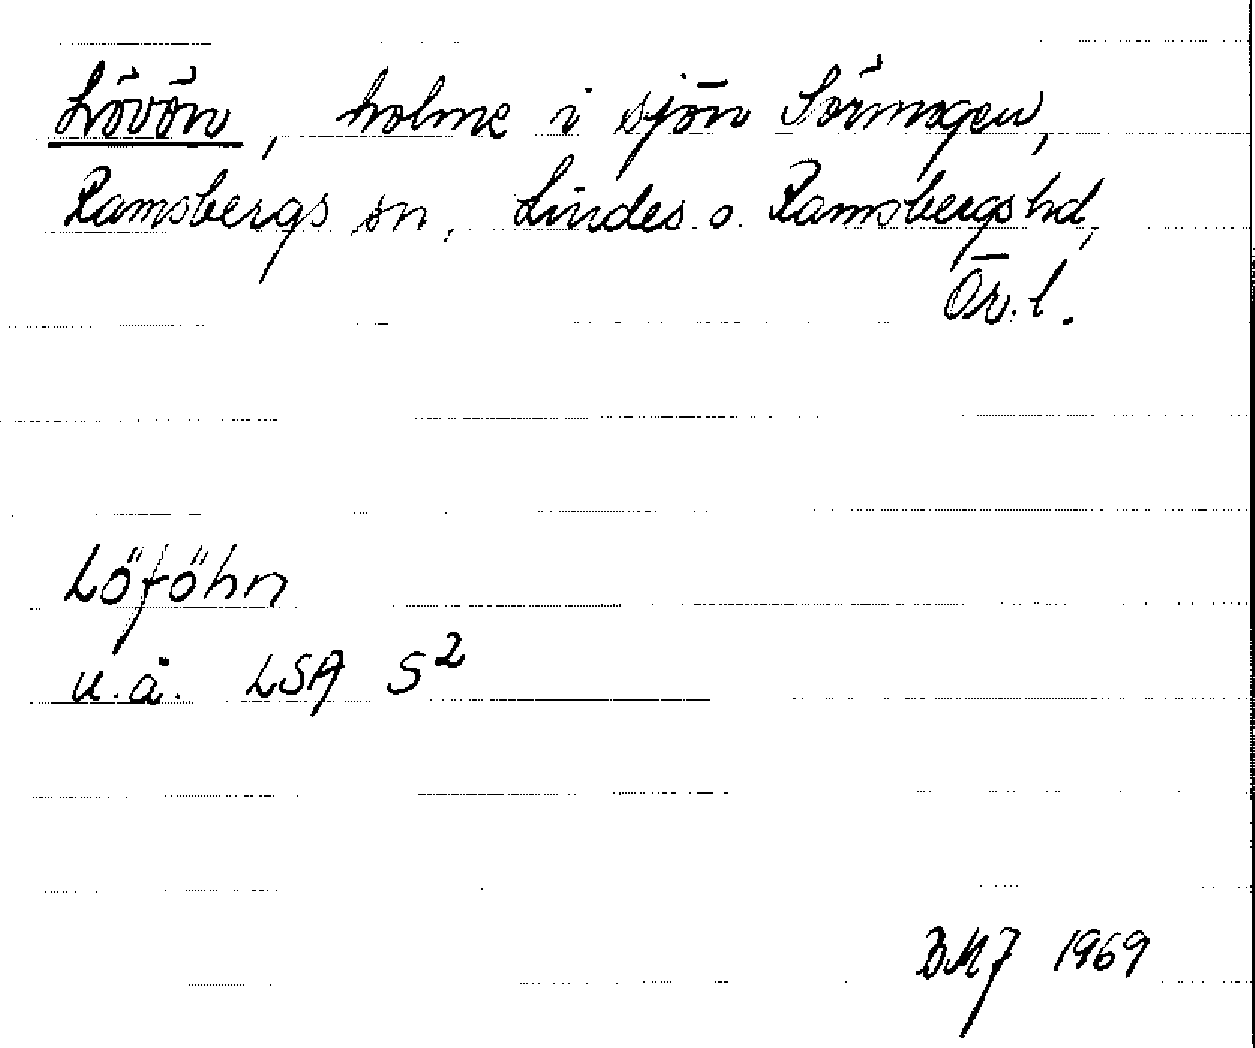 Lövön, holme i sjön Sörmogen,
Ramsbergs sn, Lindes o. Ramsbergs hd,
Ör. l.
Löföhn
u.ä. LSA S²
BMJ 1969